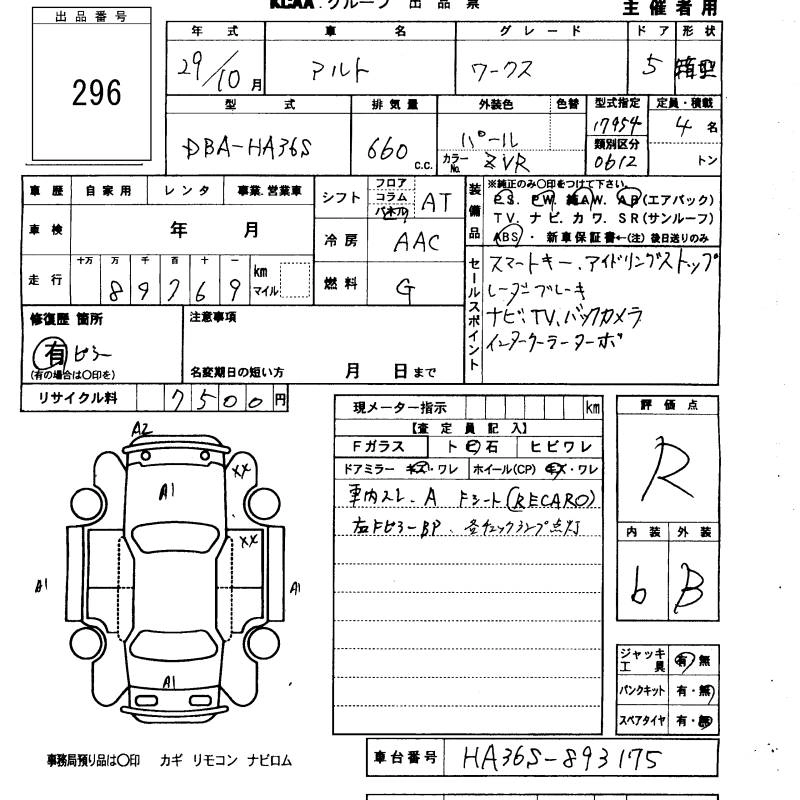 KCAA.グループ 出品票
主催者用
出品番号
296
年式 車名 グレード ドア 形状
29/10月 アルト ワークス 5 箱型
型式 排気量 外装色 色替 型式指定 定員・積載
DBA-HA36S 660 c.c. パール 17954 4名
カラーNo. ZVR 類別区分 0612 トン
車歴 自家用 レンタ 事業.営業車
車検 年 月
走行 十万 万 千 百 十 一 km マイル
8 9 7 6 9
シフト フロア コラム パネル AT
冷房 AAC
燃料 G
装備品 ※純正のみ〇印をつけて下さい。
P.S. P.W. 純A.W. A.B(エアバック)
T V. ナビ. カワ. S R (サンルーフ)
ABS ・ 新車保証書←(注) 後日送りのみ
セールスポイント
スマートキー、アイドリングストップ
レーダーブレーキ
ナビ、TV、バックカメラ
インタークーラーターボ
修復歴 箇所
有 ピラー
(有の場合は〇印を)
注意事項
名変期日の短い方 月 日まで
リサイクル料 7500円
現メーター指示 km
【査定員記入】
Fガラス ト ビ 石 ヒビワレ
ドアミラー キズ・ワレ ホイール(CP) キズ・ワレ
車内スレ、A Fシート(RECARO)
左FピラーBP、 チェックランプ点灯
評価点
R
内装 外装
b B
ジャッキ工具 有・無
パンクキット 有・無
スペアタイヤ 有・無
A2
A1
XX
XX
A1
A1
A1
事務局預り品は〇印 カギ リモコン ナビロム
車台番号 HA36S-893175